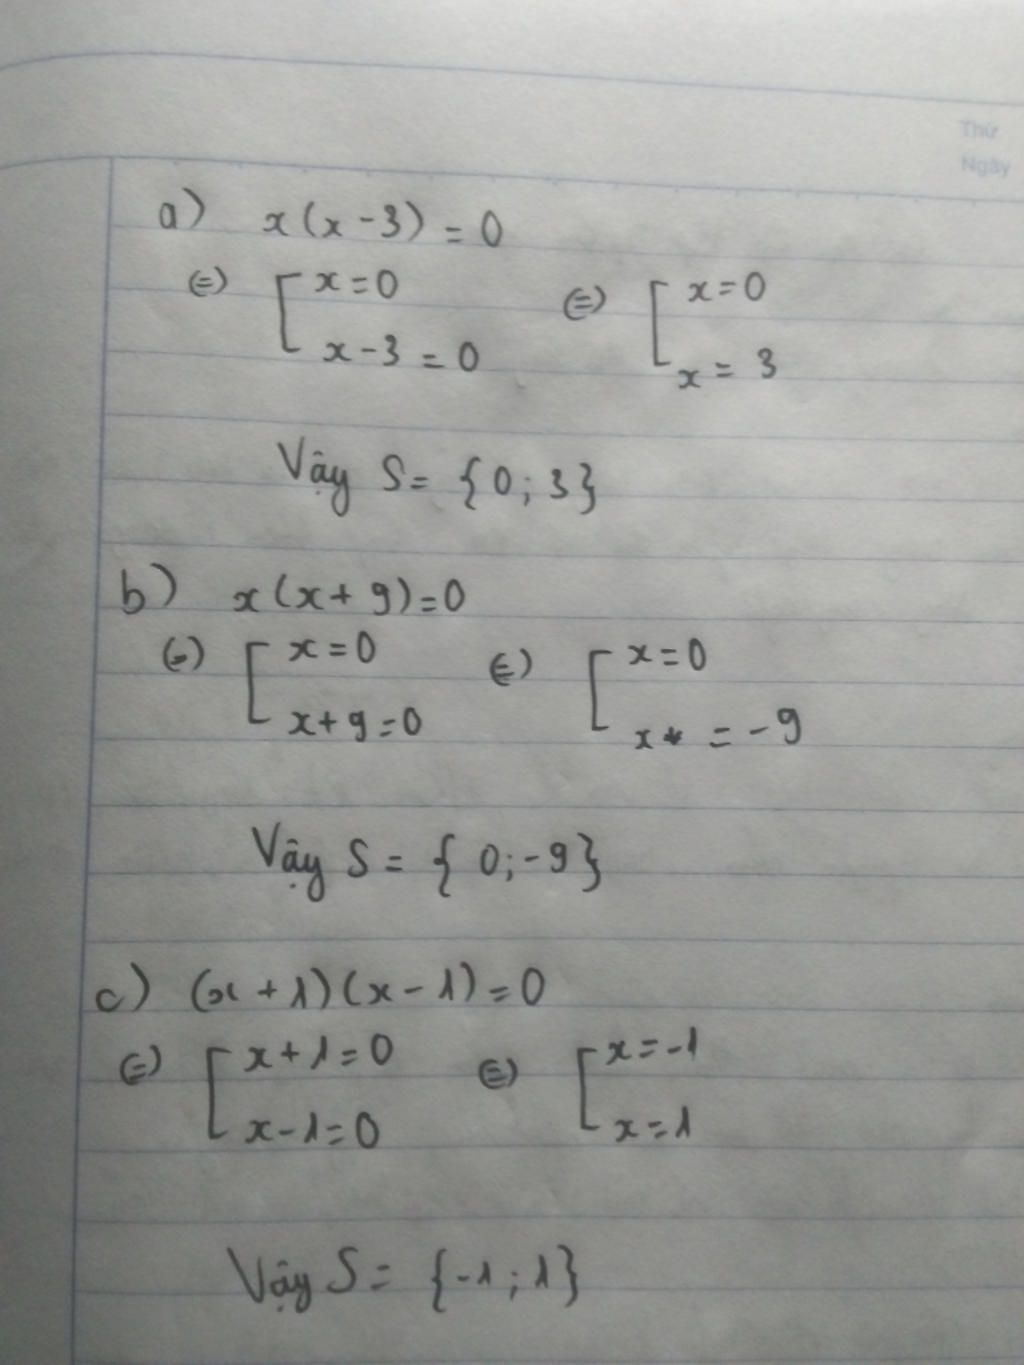 Thứ
Ngày
a) x(x-3) = 0
⇔ [ x=0 ⇔ [ x=0
x-3=0 x = 3
Vậy S= {0; 3}
b) x(x+9)=0
⇔ [ x=0 ⇔ [ x=0
x+9=0 x = -9
Vậy S = { 0;-9}
c) (x+1)(x-1)=0
⇔ [ x+1=0 ⇔ [ x=-1
x-1=0 x=1
Vậy S = {-1; 1}